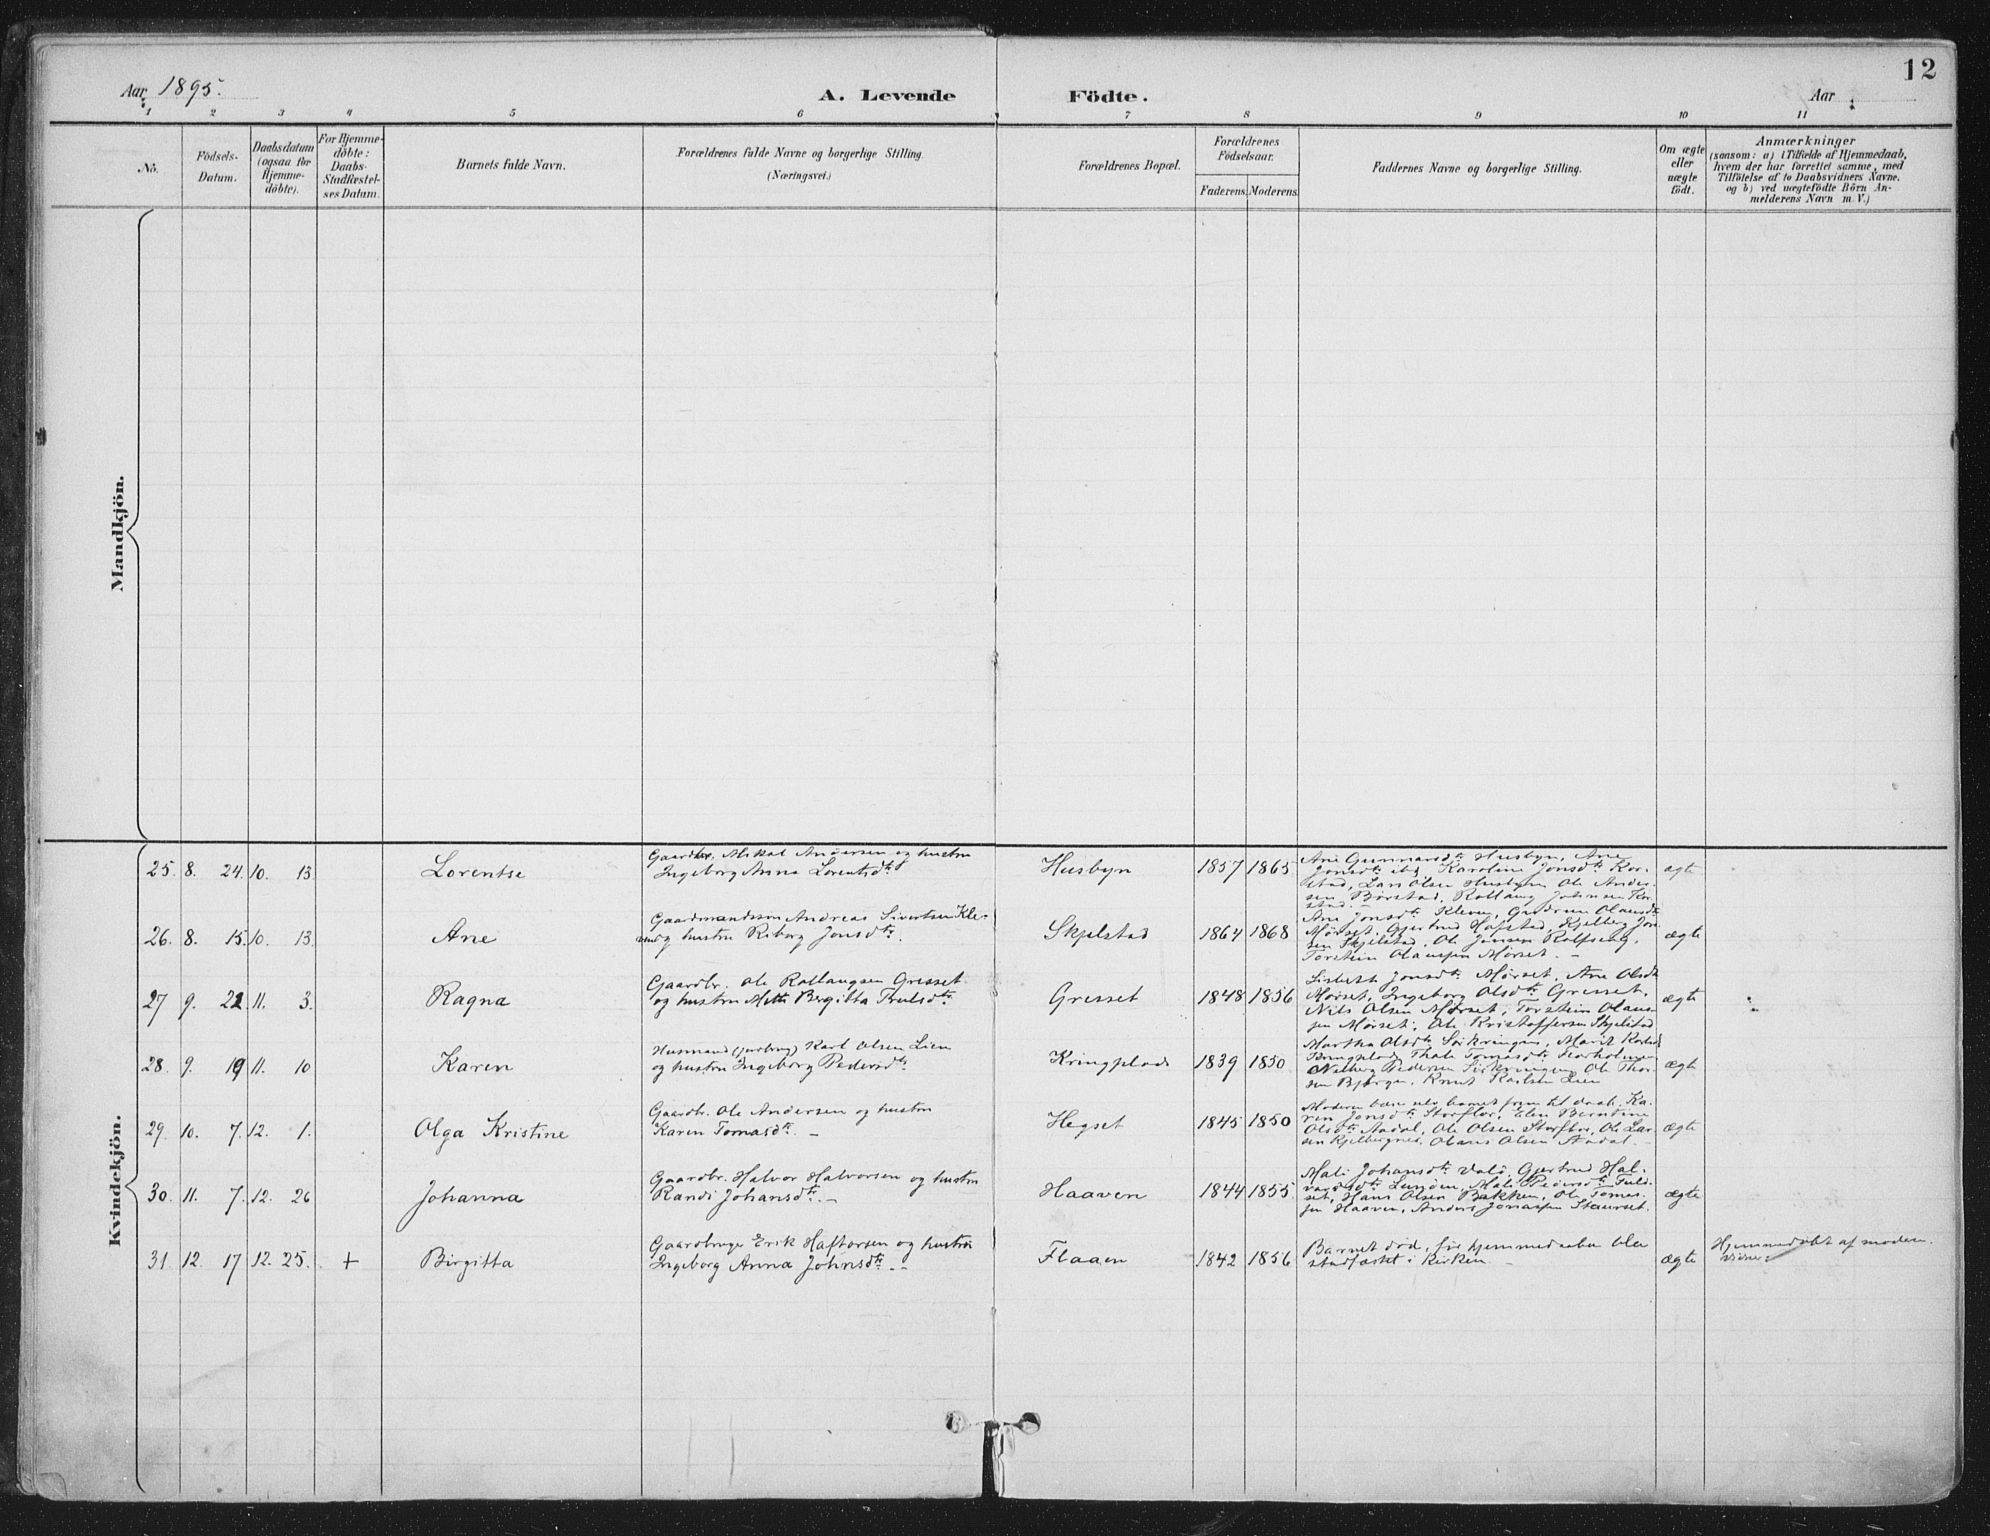 12
Aar 1895.
A. Levende Födte.
Aar
1 2 3 4 5 6 7 8 9 10 11
No.
Födsels-
Datum.
Daabsdatum
(ogsaa for
Hjemme-
döbte).
For Hjemme-
döbte:
Daabs-
Stadfæstel-
ses Datum.
Barnets fulde Navn.
Forældrenes fulde Navne og borgerlige Stilling.
(Næringsvei.)
Forældrenes Bopæl.
Forældrenes
Födselsaar.
Faderens. Moderens.
Faddernes Navne og borgerlige Stilling.
Om ægte
eller
uægte
födt.
Anmærkninger
(saasom: a) i Tilfælde af Hjemmedaab,
hvem der har forrettet samme, med
Tilföielse af to Daabsvidners Navne.
og b) ved uægtefödte Börn An-
melderens Navn m. V.)
Mandkjön.
Kvindekjön.
25. 8. 24. 10. 13. Lorentse
Gaardbr. Mikal Andersen og hustru
Ingeborg Anna Lorentsdtr
Husbyn 1857 1865
Ane Gunnarsdtr Husbyn, Ane
Jonsdtr ibd, Karoline Jonsdtr Kor-
stad, Lars Olsen Husbyn, Ole Ander-
sen Børstad, Rollaug Johnsen Kor-
stad.
ægte
26. 8. 15. 10. 13. Ane
Gaardmandssøn Andreas Sivertsen Kle-
og hustru Riborg Jonsdtr.
Skjelstad 1864 1868
Ane Jonsdtr Kleven, Gudrun Olausdtr
Mørset, Gjertrud Hofstad, Kjelberg Jon-
sen Skjelstad, Ole Jonsen Rolfseng,
Torstein Olaussen Mørset. –
ægte
27 9. 22. 11. 3. Ragna
Gaardbr. Ole Rollaugsen Gresset
og hustru Mette Bergitta Trulsdtr.
Gresset 1848 1856
Lisbeth Jonsdtr Mørset, Ane Olsdtr
Mørset, Ingeborg Olsdtr Gresset,
Nils Olsen Mørset, Torstein Olaus-
sen Mørset, Ole Kristoffersen Skjelstad
ægte
28. 9. 19 11. 10 Karen
Husmand (jordbrug) Karl Olsen Lien
og hustru Ingeborg Pedersdtr
Kringplads 1839 1850
Martha Olsdtr Kringen, Marit
Kringplads, Thale Tomasdtr
Pedersen Kringen, Ole Thor-
sen Bjørgen, Knut Karlsen Lien
ægte
29. 10. 7. 12. 1. Olga Kristine
Gaardbr. Ole Andersen og hustru
Karen Tomasdtr. –
Hegset 1845 1850
Moderen bar selv barnet frem til daab. Ka-
ren Jonsdtr Storflor, Elen Berntine
Olsdtr Aadal, Ole Olsen Storflor, Ole Lar-
sen Kjelbergnes, Olaus Olsen Aadal. –
ægte
30. 11. 7. 12. 26 Johanna
Gaardbr. Halvor Halvorsen og hustru
Randi Johansdtr. –
Haaven 1844 1855
Mali Johansdtr Vold, Gjertrud Hal-
vorsdtr Lunden, Mali Pedersdtr Fuld-
set, Hans Olsen Bakken, Ole Tomas-
sen Haaven, Anders Jonassen Staurset.
ægte
31. 12. 17 12. 25. + Birgitta
Gaardbruge Erik Haftorsen og hustru
Ingeborg Anna Johnsdtr. –
Flaaen 1842 1856
Barnet död, för hjemmedaaben blev
stadfæstet i Kirken. –
ægte
Hjemmedøbt af moderen.